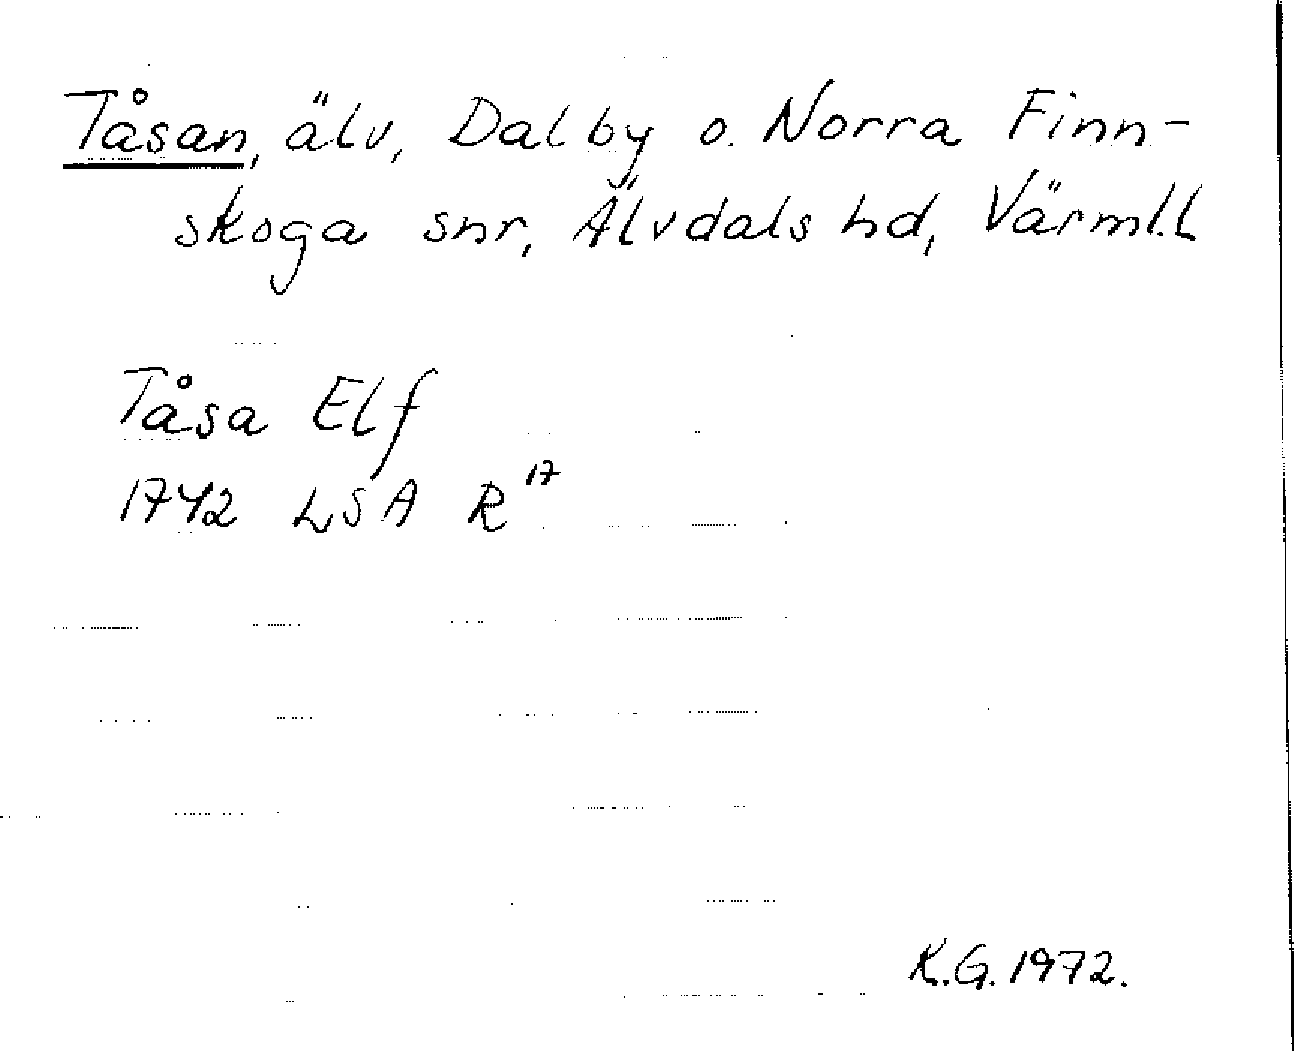 Tåsan, älv, Dalby o. Norra Finn-
skoga snr, Älvdals hd, Värml.l
Tåsa Elf
1742 LSA R 17
K.G. 1972.